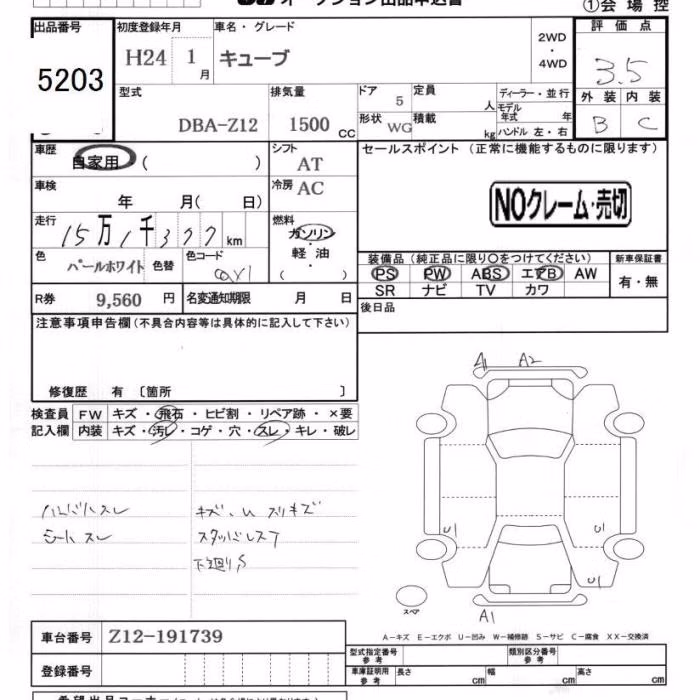 オークション出品申込書
①会場控
出品番号 初度登録年月 車名・グレード 評価点
5203 H24 1月 キューブ 2WD・4WD 3.5
型式 排気量 ドア 5 定員 人 ディーラー・並行 外装 内装
DBA-Z12 1500 CC 形状 WG 積載 kg モデル年式 年 ハンドル 左・右 B C
車歴 自家用 ( ) シフト AT セールスポイント(正常に機能するものに限ります)
車検 年 月( 日) 冷房 AC
NOクレーム・売切
走行 15万1千377km 燃料 ガソリン・軽油 ( )
色 パールホワイト 色替 色コード QX1
装備品(純正品に限り○をつけてください) 新車保証書
PS PW ABS エアB AW 有・無
SR ナビ TV カワ
R券 9,560 円 名変通知期限 月 日 後日品
注意事項申告欄(不具合内容等は具体的に記入して下さい)
修復歴 有 〔箇所 〕
検査員 FW キズ・飛石・ヒビ割・リペア跡・×要
記入欄 内装 キズ・汚レ・コゲ・穴・スレ・キレ・破レ
A1 A2
ハンドルスレ キズ、U スリキズ
シートスレ スタッドレスT
下廻りS
U1 U1
U1
スペア A1
A-キズ E-エクボ U-凹み W-補修跡 S-サビ C-腐食 XX-交換済
車台番号 Z12-191739
登録番号
型式指定番号 参考 類別区分番号 参考
車庫証明用 参考 長さ cm 幅 cm 高さ cm